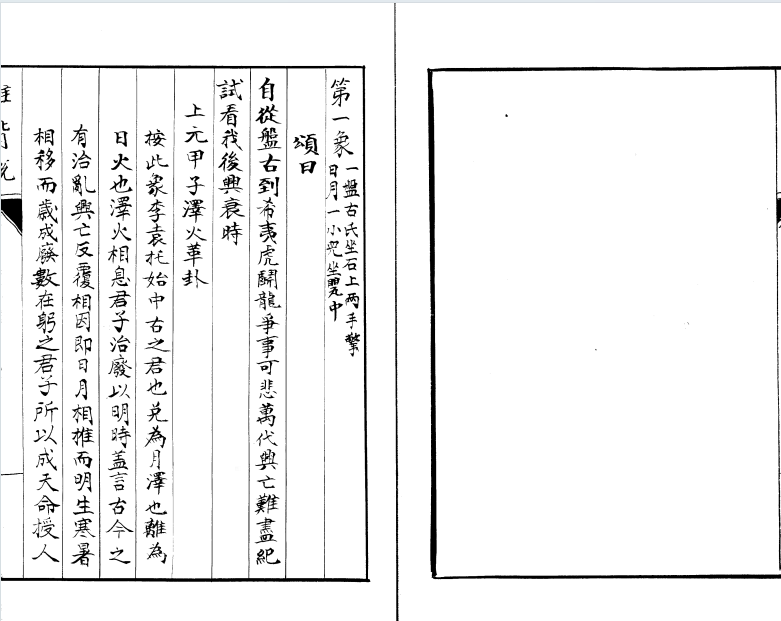 第一象 一盤古氏坐石上两手擎
日月一小兕坐瓮中
頌曰
自從盤古到希夷虎鬭龍爭事可悲萬代興亡難盡紀
試看我後興衰時
上元甲子澤火革卦
按此象李袁托始中古之君也兑為月澤也離為
日火也澤火相息君子治廢以明時盖言古今之
有治亂興亡反覆相因即日月相推而明生寒暑
相移而歲成廢數在躬之君子所以成天命授人
推背說